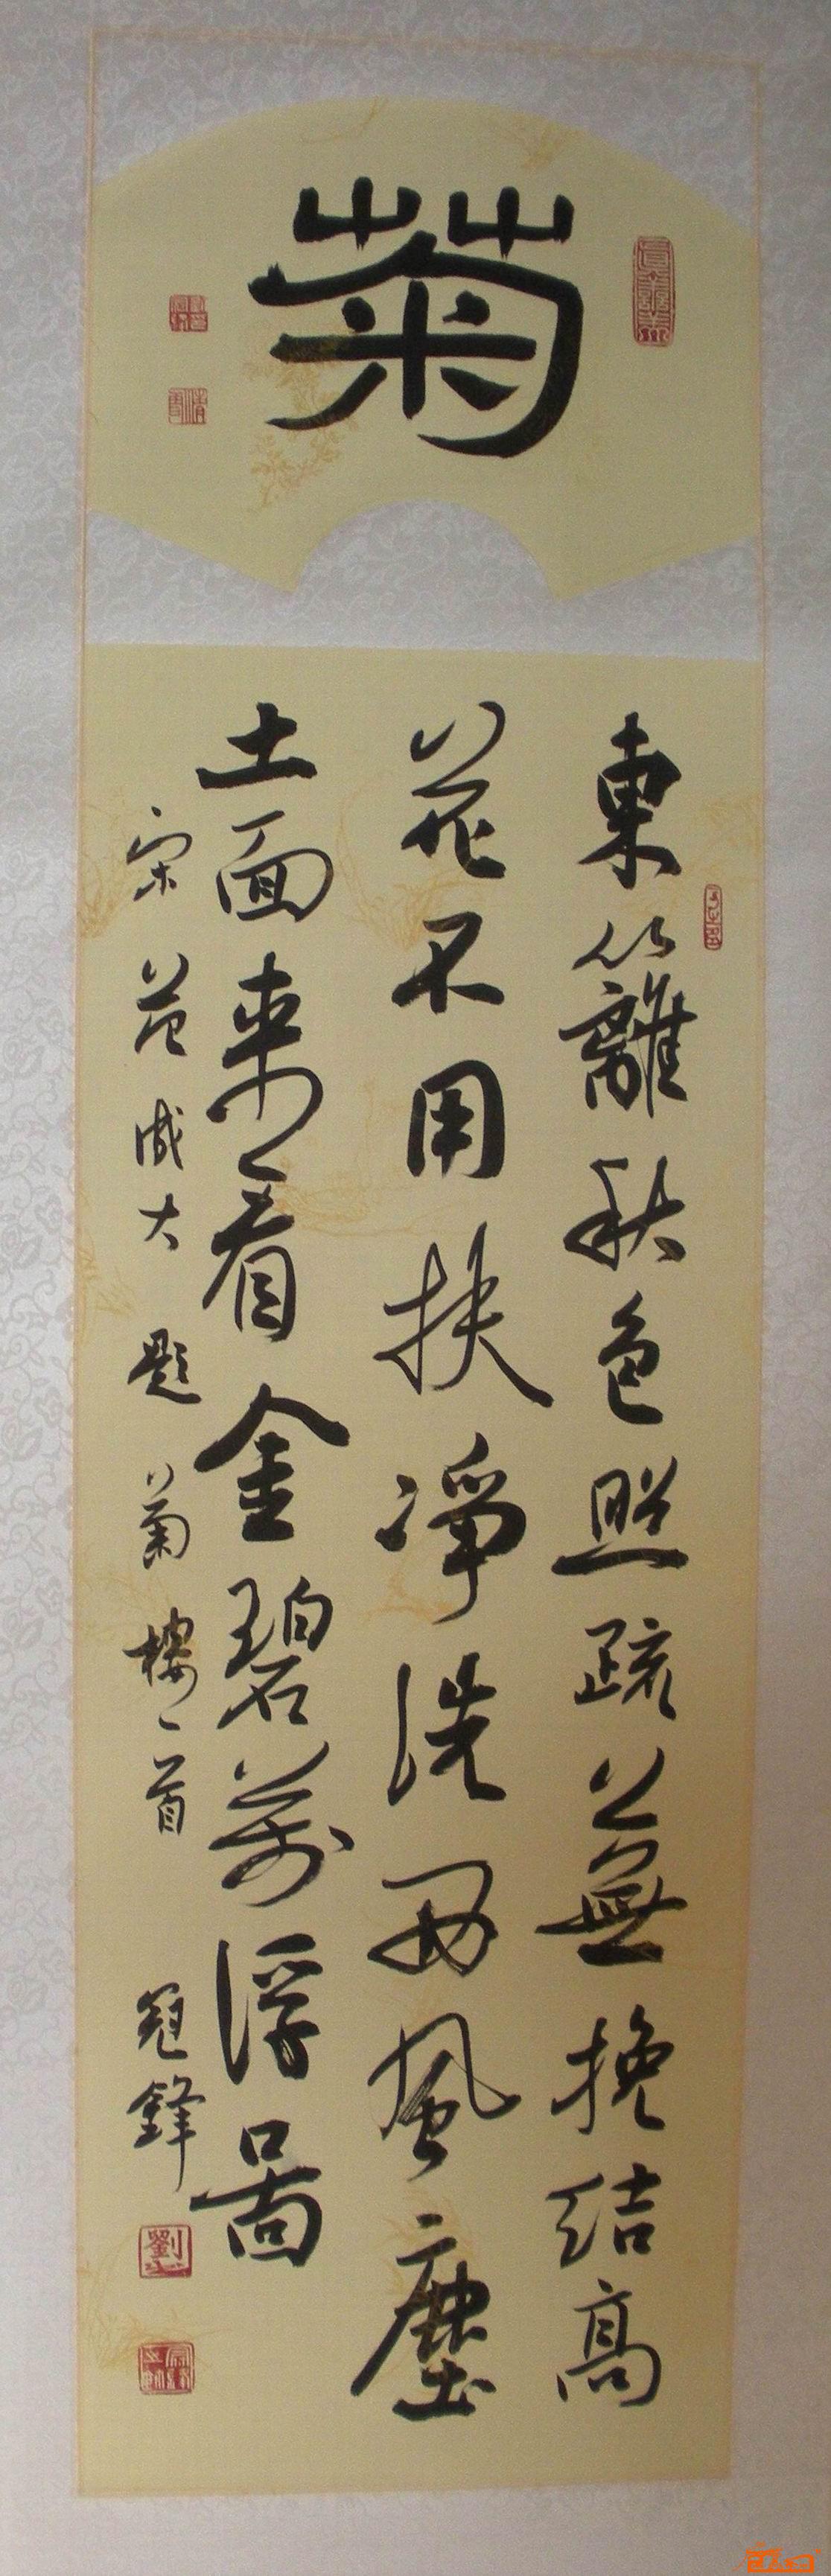 菊
東籬秋色照疏蕪挽結高
花不用扶淨洗西風塵
土面來看金碧萬浮圖
宋 范成大 題 菊樓一首 冠鋒
劉